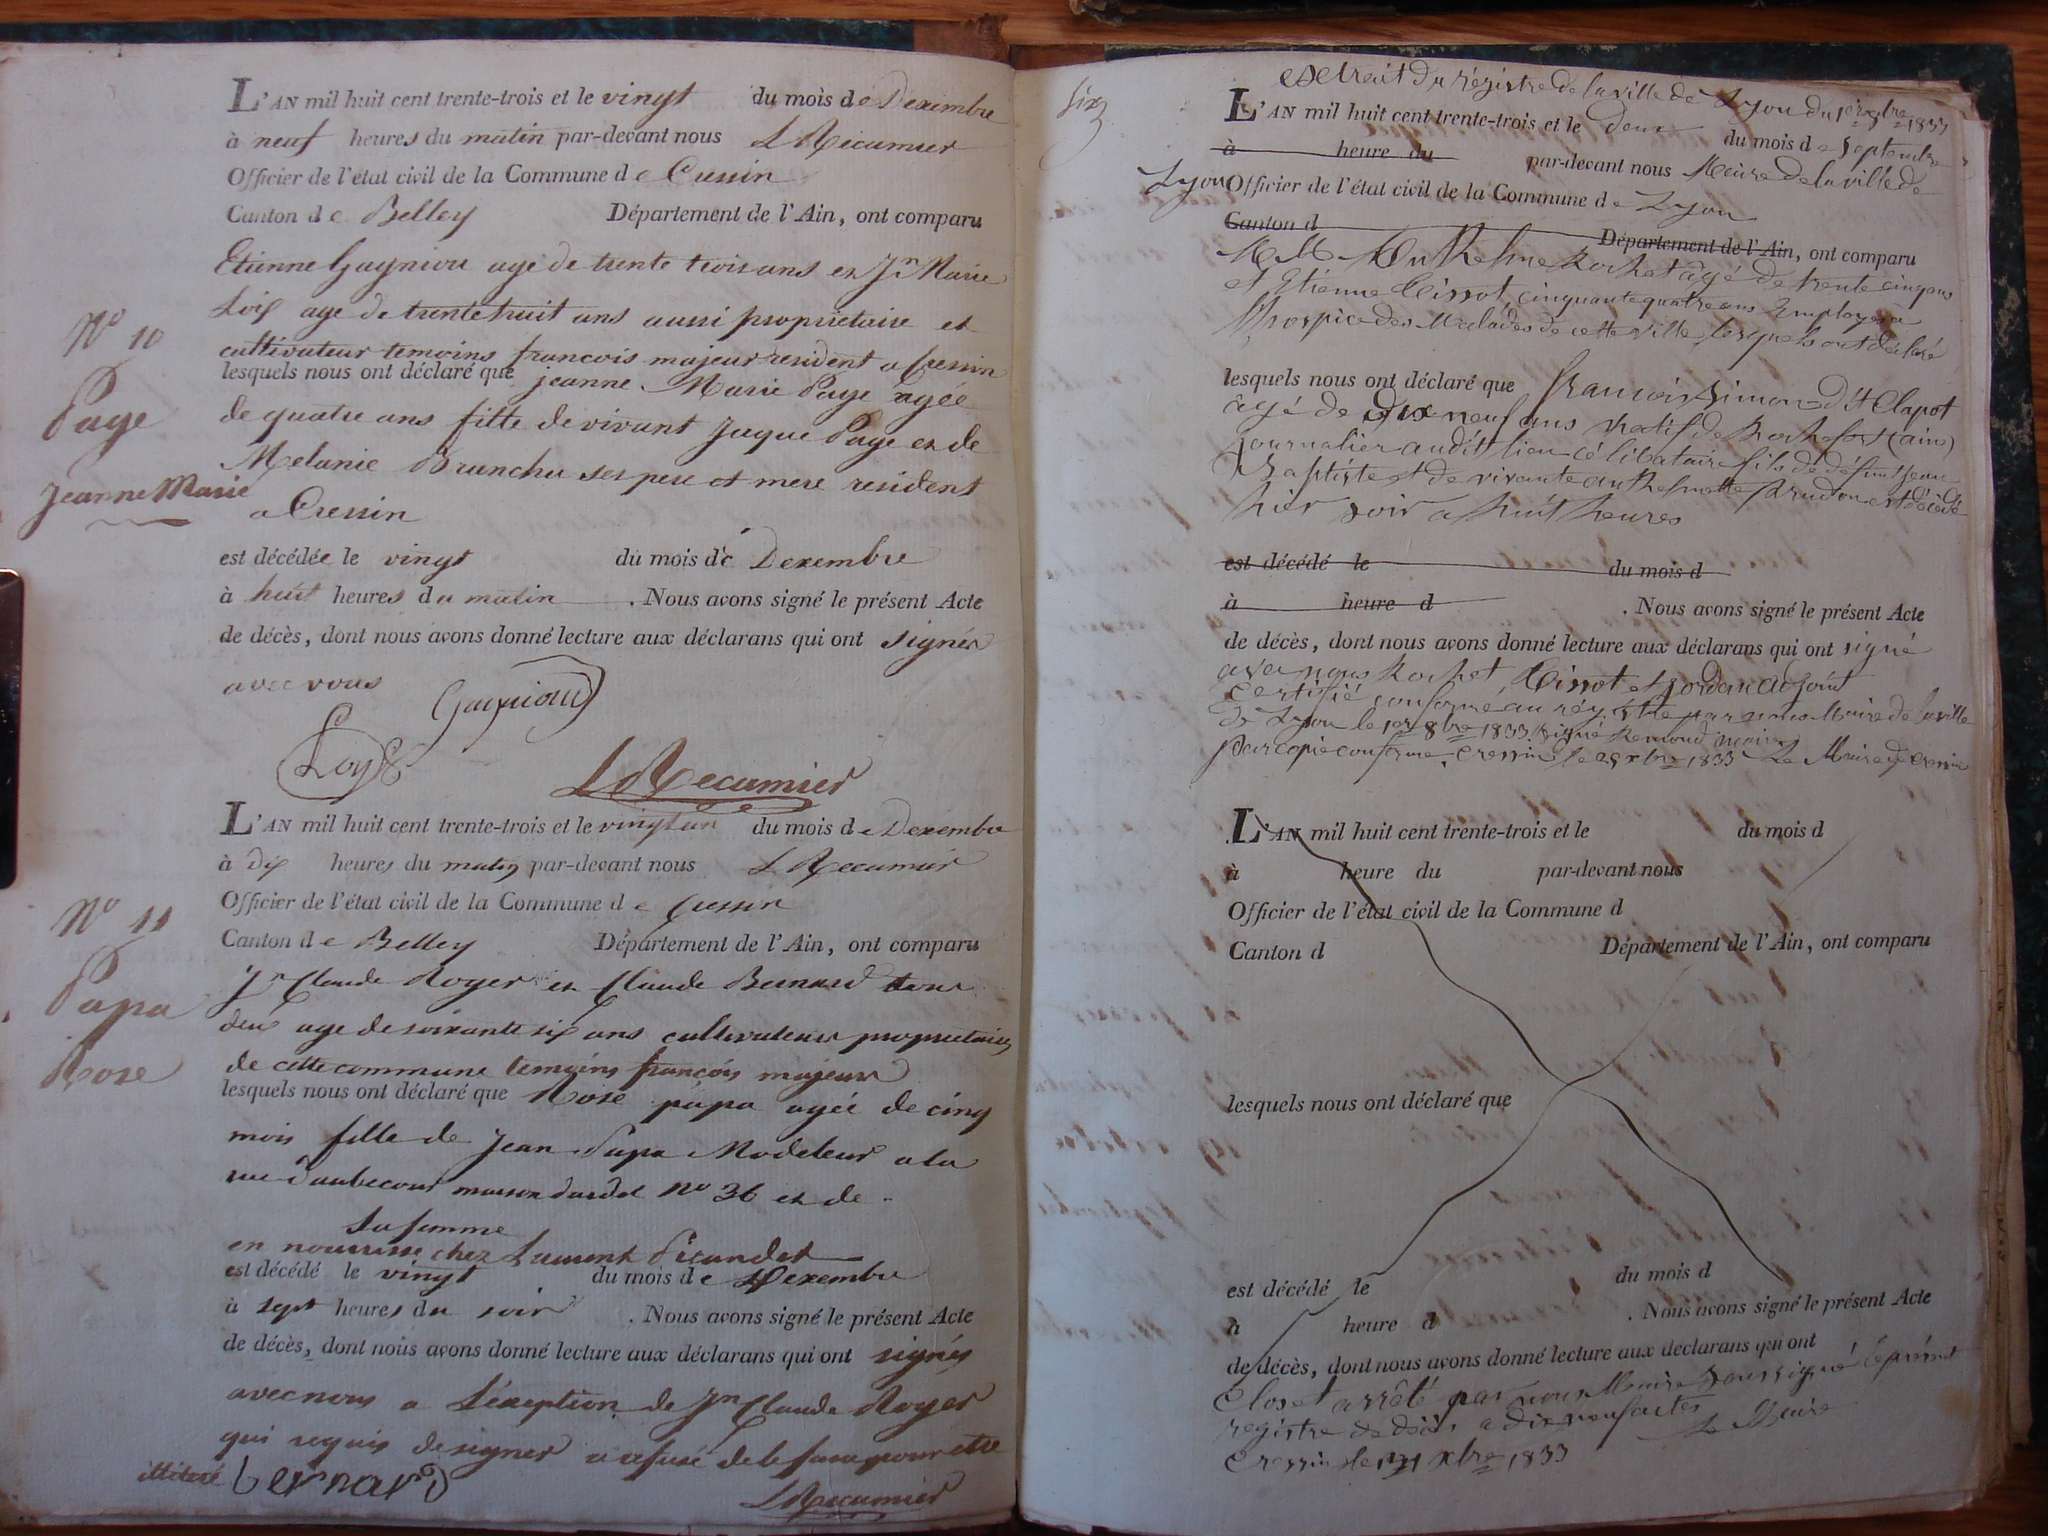 L'AN mil huit cent trente-trois et le vingt du mois de Dexembre
à neuf heures du matin par-devant nous L Récamier
Officier de l'état civil de la Commune de Cressin
Canton de Belley Département de l'Ain, ont comparu
Etienne Gagniou agé de trente trois ans et Jn Marie
Loys age de trente huit ans aussi propriétaire et
cultivateur temoins francois majeur resident a Cressin
lesquels nous ont déclaré que jeanne Marie Page agée
de quatre ans fille de vivant Jaque Page et de
Melanie Brunchu ses pere et mere resident
a Cressin
est décédée le vingt du mois de Dexembre
à huit heures du matin . Nous avons signé le présent Acte
de décès, dont nous avons donné lecture aux déclarans qui ont signés
avec nous
Gagniou
Loys
L Récamier
No 10
Page
Jeanne Marie
L'AN mil huit cent trente-trois et le vingt un du mois de Dexembre
à dix heures du matin par-devant nous L Récamier
Officier de l'état civil de la Commune de Cressin
Canton de Belley Département de l'Ain, ont comparu
Jn Claude Royer et Claude Bernard tous
deux age de soixante six ans cultivateurs propriétaires
de cette commune temoins françois majeurs
lesquels nous ont déclaré que Rose papa agée de cinq
mois fille de Jean Papa Modeleur a la
rue d'aubecour maison No 36 et de
sa femme
en nourrisse chez Laurent Picandet
est décédé le vingt du mois de Dexembre
à sept heures du soir . Nous avons signé le présent Acte
de décès, dont nous avons donné lecture aux déclarans qui ont signés
avec nous a l'éxeption de Jn Claude Royer
qui requis de signer a refusé de le faire pour etre
illiteré Bernard
L Récamier
No 11
Papa
Rose
six
extrait du régistre de la ville de Lyon du 1er 8bre 1833
L'AN mil huit cent trente-trois et le deux du mois de Septembre
à heure du par-devant nous Maire de la ville de
Lyon Officier de l'état civil de la Commune de Lyon
Canton d Département de l'Ain, ont comparu
MM Anthelme Rochet âgé de trente cinq ans
et Etienne Tissot, cinquante quatre ans Employés a
l'hospice des Malades de cette ville, lesquels ont déclaré
lesquels nous ont déclaré que francois Simon dit Clapot
âgé de dix neuf ans natif de Rochefort (ain)
journalier audit lieu célibataire fils de défunt Jean
Baptiste et de vivante anthelmette Prudon est décédé
hier soir a huit heures
est décédé le du mois d
à heure d . Nous avons signé le présent Acte
de décès, dont nous avons donné lecture aux déclarans qui ont signé
avec nous Rochet, Tissot et Jordan adjoint
Certifié conforme au régistre par nous Maire de la ville
de Lyon le 1er 8bre 1833. Signé maire
Pour copie conforme. Cressin le 25 xbre 1833 Le Maire de Cressin
L'AN mil huit cent trente-trois et le du mois d
à heure du par-devant nous
Officier de l'état civil de la Commune d
Canton d Département de l'Ain, ont comparu
lesquels nous ont déclaré que
est décédé le du mois d
à heure d . Nous avons signé le présent Acte
de décès, dont nous avons donné lecture aux déclarans qui ont
Clos et arrêté par nous Maire soussigné le présent
registre de décès a dix neuf actes
Cressin le 31 xbre 1833 Le Maire